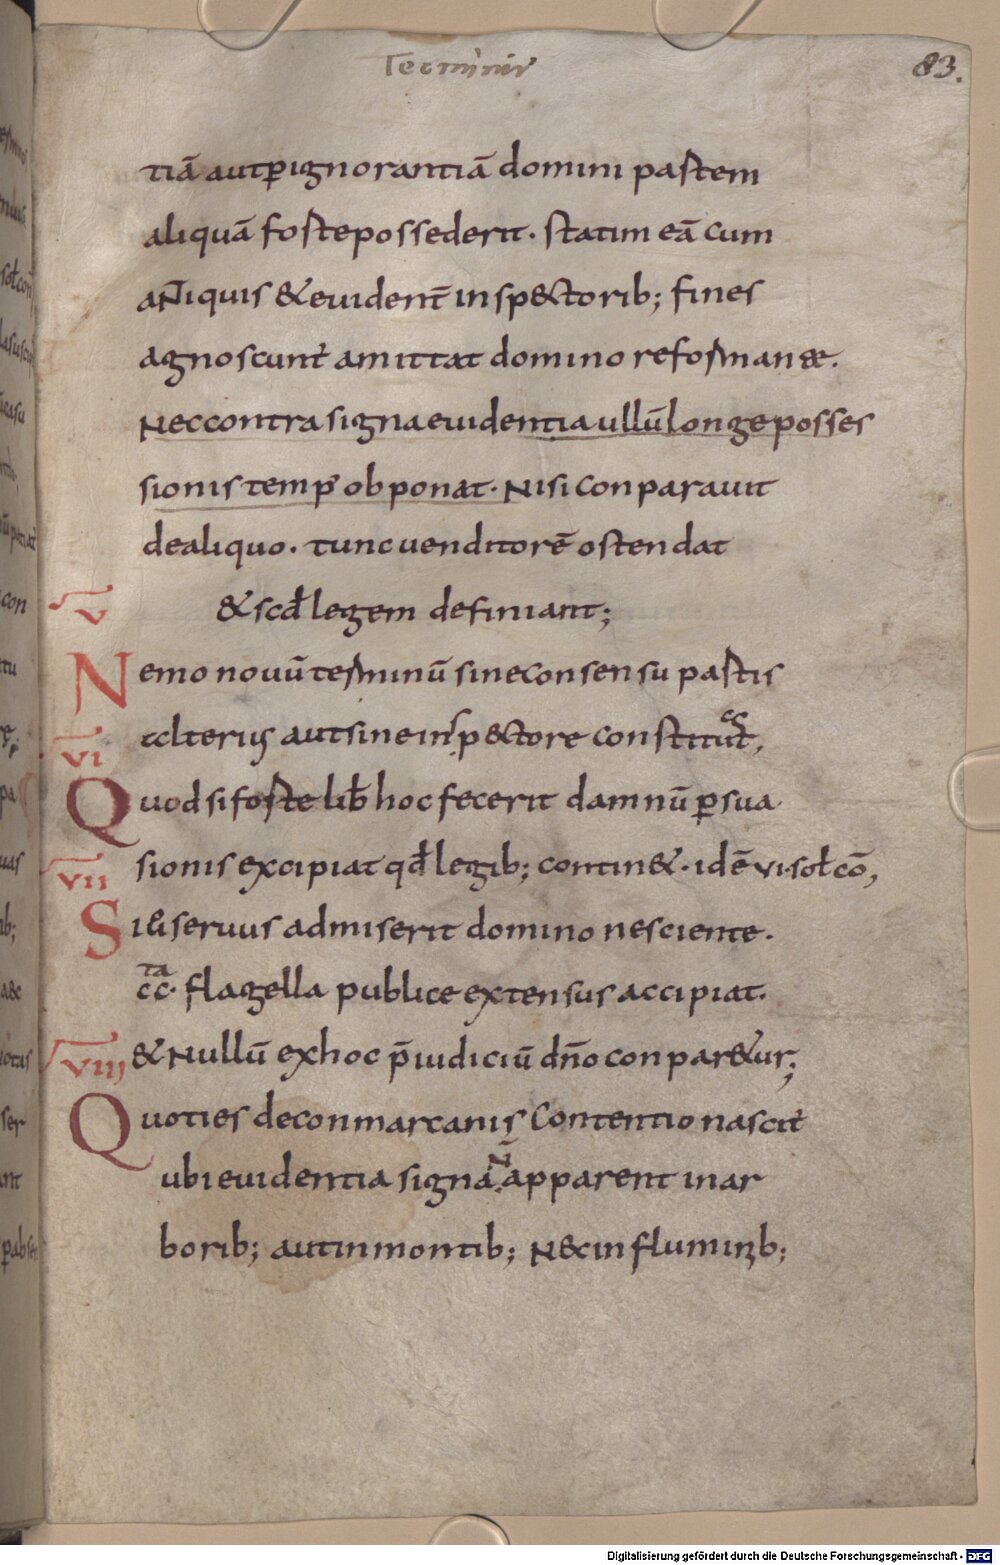 Terminis
83.
tiā aut ꝑ ignorantiā domini partem
aliquā forte possederit. statim eā cum
antiquis & euident̄ inspectorib; fines
agnoscunt̄ amittat domino reforman&.
Nec contra signa euidentia ullū longe posses
sionis temp̄ obponat. Nisi conparauit
de aliquo. tunc uenditorē ostendat
& scđ legem definiant;
v
Nemo nouū terminū sine consensu partis
alterius aut sine inspectore constituat,
es
vi
Quod si forte lib̄ hoc fecerit damnū ꝑsua
sionis excipiat qđ legib; contin&. idē vi. soł cō,
vii
Si & seruus admiserit domino nesciente.
cc. flagella publice extensus accipiat.
ta
viii
& Nullū ex hoc p̄iudiciū dn̄o conpar&ur;
Quoties de conmarcanis contentio nascit̄
ubi euidentia signa n̄ apparent in ar
borib; aut in montib; Nec in fluminib;
Digitalisierung gefördert durch die Deutsche Forschungsgemeinschaft - DFG